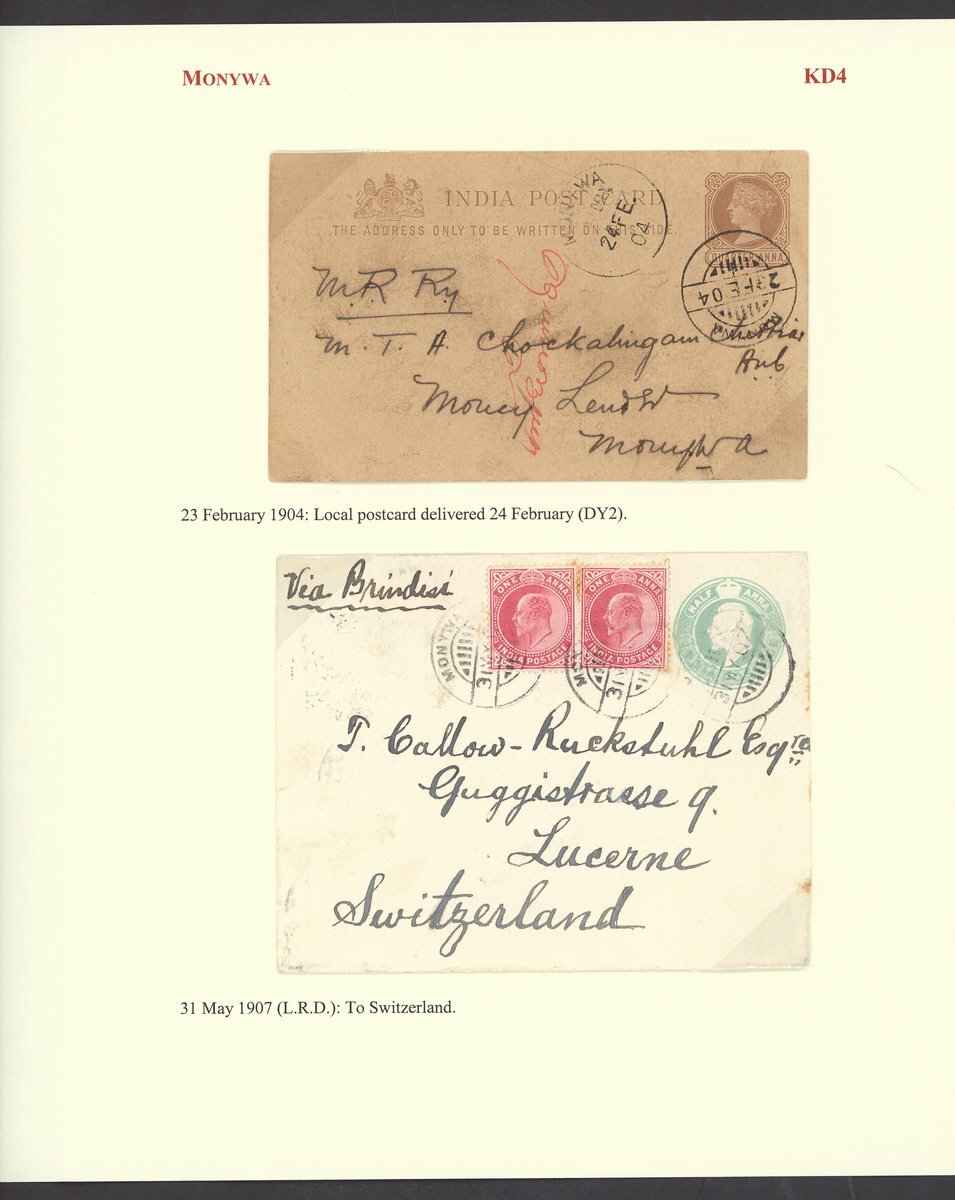 MONYWA KD4
INDIA POST CARD
THE ADDRESS ONLY TO BE WRITTEN ON THIS SIDE.
QUARTER ANNA
MONYWA
24 FE
04
23 FE 04
MONYWA
M.R Ry
M. T. A. Chockalingam
Money Lender
Monywa
23 February 1904: Local postcard delivered 24 February (DY2).
Via Brindisi
ONE ANNA
INDIA POSTAGE
ONE ANNA
INDIA POSTAGE
HALF ANNA
MONYWA
31 MY
31 MY
T. Callow-Ruckstuhl Esqre
Guggistrasse 9.
Lucerne
Switzerland
31 May 1907 (L.R.D.): To Switzerland.